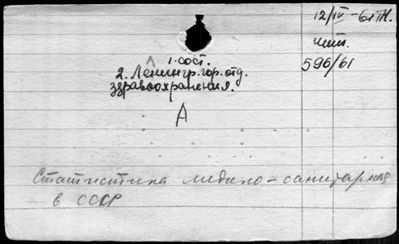 12/IV-61 г.
чит.
596/61
1. сост.
2. Ленингр. гор. отд.
здравоохранения.
А
Статистика медико-санитарная
в СССР